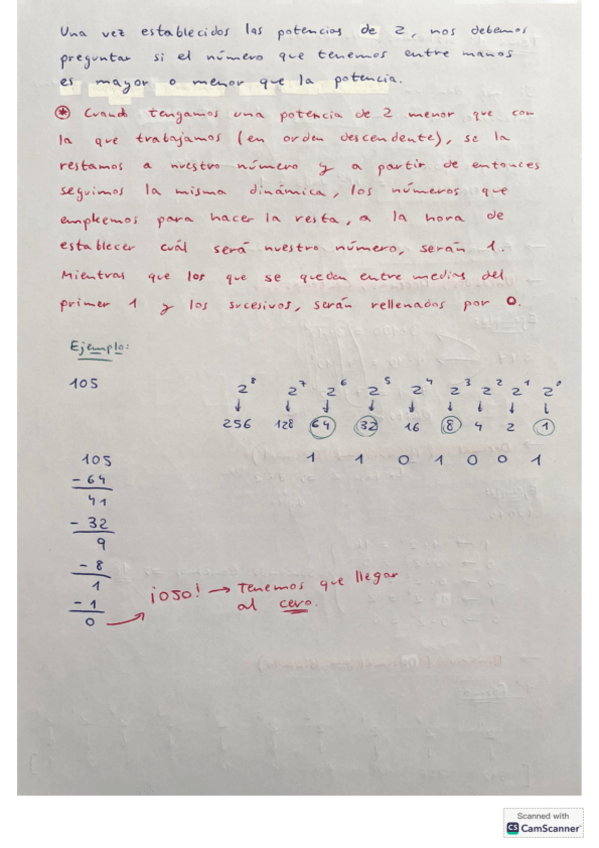 Una vez establecidos las potencias de 2, nos debemos
preguntar si el número que tenemos entre manos
es mayor o menor que la potencia.
* Cuando tengamos una potencia de 2 menor que con
la que trabajamos (en orden descendente), se la
restamos a nuestro número y a partir de entonces
seguimos la misma dinámica, los números que
empleemos para hacer la resta, a la hora de
establecer cuál será nuestro número, serán 1.
Mientras que los que se queden entre medias del
primer 1 y los sucesivos, serán rellenados por 0.
Ejemplo:
105
2⁸ 2⁷ 2⁶ 2⁵ 2⁴ 2³ 2² 2¹ 2⁰
↓ ↓ ↓ ↓ ↓ ↓ ↓ ↓ ↓
256 128 64 32 16 8 4 2 1
1 1 0 1 0 0 1
105
- 64
41
- 32
9
- 8
1
- 1
0
¡OJO! → Tenemos que llegar
al cero.
Scanned with
CS CamScanner